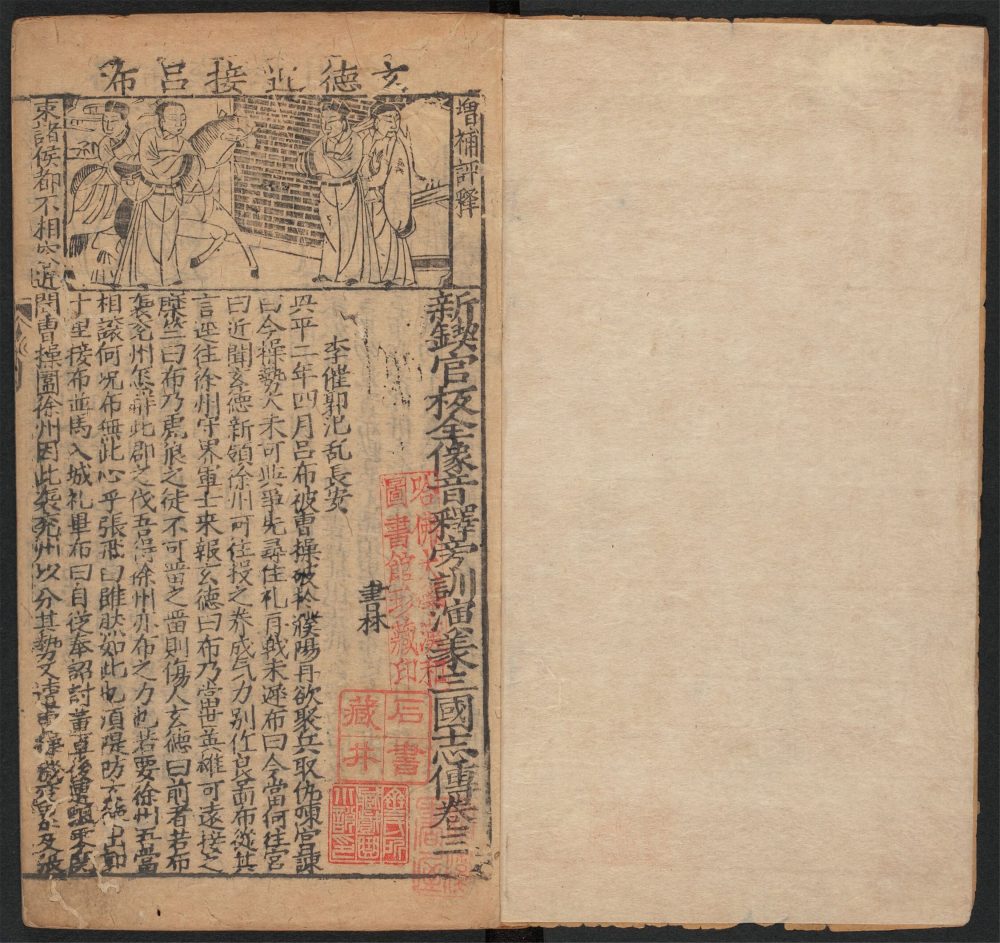 玄德近接吕布
增補評釋
新鍥官板全像音釋旁訓演義三國志傳卷三
書林
李催郭汜乱長安
兴平二年四月吕布被曹操破於濮陽再欲聚兵取仇陳宫諫
曰今操勢大未可與爭先尋住札再戰未遲布曰今當何往宫
曰近聞玄德新領徐州可往投之养成气力别作良圖布從其
言迳往徐州守界軍士來報玄德曰布乃當世英雄可遠接之
糜竺曰布乃虎狼之徒不可畱之畱則傷人玄德曰前者若布
不襲兖州怎解此郡之伐吾得徐州亦布之力也若要徐州吾當
相讓何况布無此心乎張飛曰雖肰如此也須隄防玄德出郭
十里接布並馬入城礼畢布曰自從奉詔討董卓後
東諸侯都不相容近聞曹操圍徐州因此襲兖州以分其勢
哈佛大學漢和
圖書館珍藏印
石書
藏井